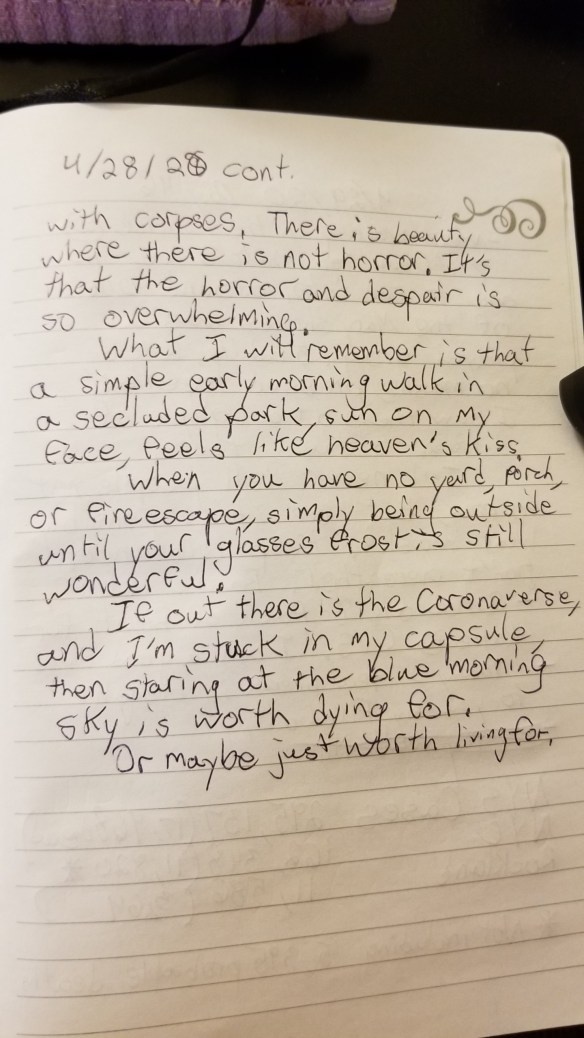 4/28/20 cont.
with corpses. There is beauty
where there is not horror. It's
that the horror and despair is
so overwhelming.
What I will remember is that
a simple early morning walk in
a secluded park, sun on my
face, feels like heaven's kiss.
When you have no yard, porch,
or fire escape, simply being outside
until your glasses frost is still
wonderful.
If out there is the Coronaverse,
and I'm stuck in my capsule,
then staring at the blue morning
sky is worth dying for.
Or maybe just worth living for.